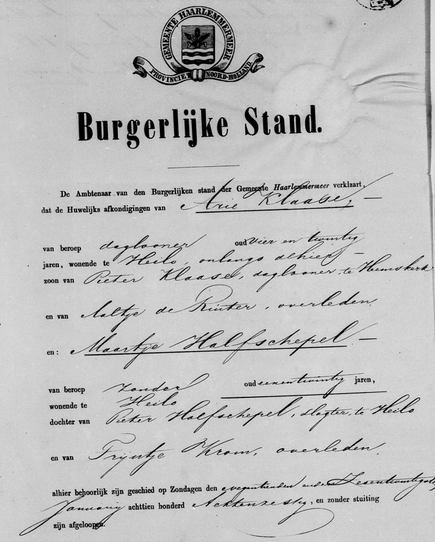 GEMEENTE HAARLEMMERMEER
PROVINCIE NOORD-HOLLAND
Burgerlijke Stand.
De Ambtenaar van den Burgerlijken stand der Gemeente Haarlemmermeer verklaart
dat de Huwelijks afkondigingen van Arie Klaasse,
van beroep daglooner oud vier en twintig
jaren, wonende te Heilo, onlangs alhier
zoon van Pieter Klaasse, daglooner te Heemskerk
en van Aaltje de Ruiter, overleden
en: Maartje Halfschepel
van beroep zonder oud eenentwintig jaren,
wonende te Heilo
dochter van Pieter Halfschepel, slagter, te Heilo
en van Trijntje Krom, overleden.
alhier behoorlijk zijn geschied op Zondagen den negentienden en
January achttien honderd Achtenzestig, en zonder stuiting
zijn afgeloopen.